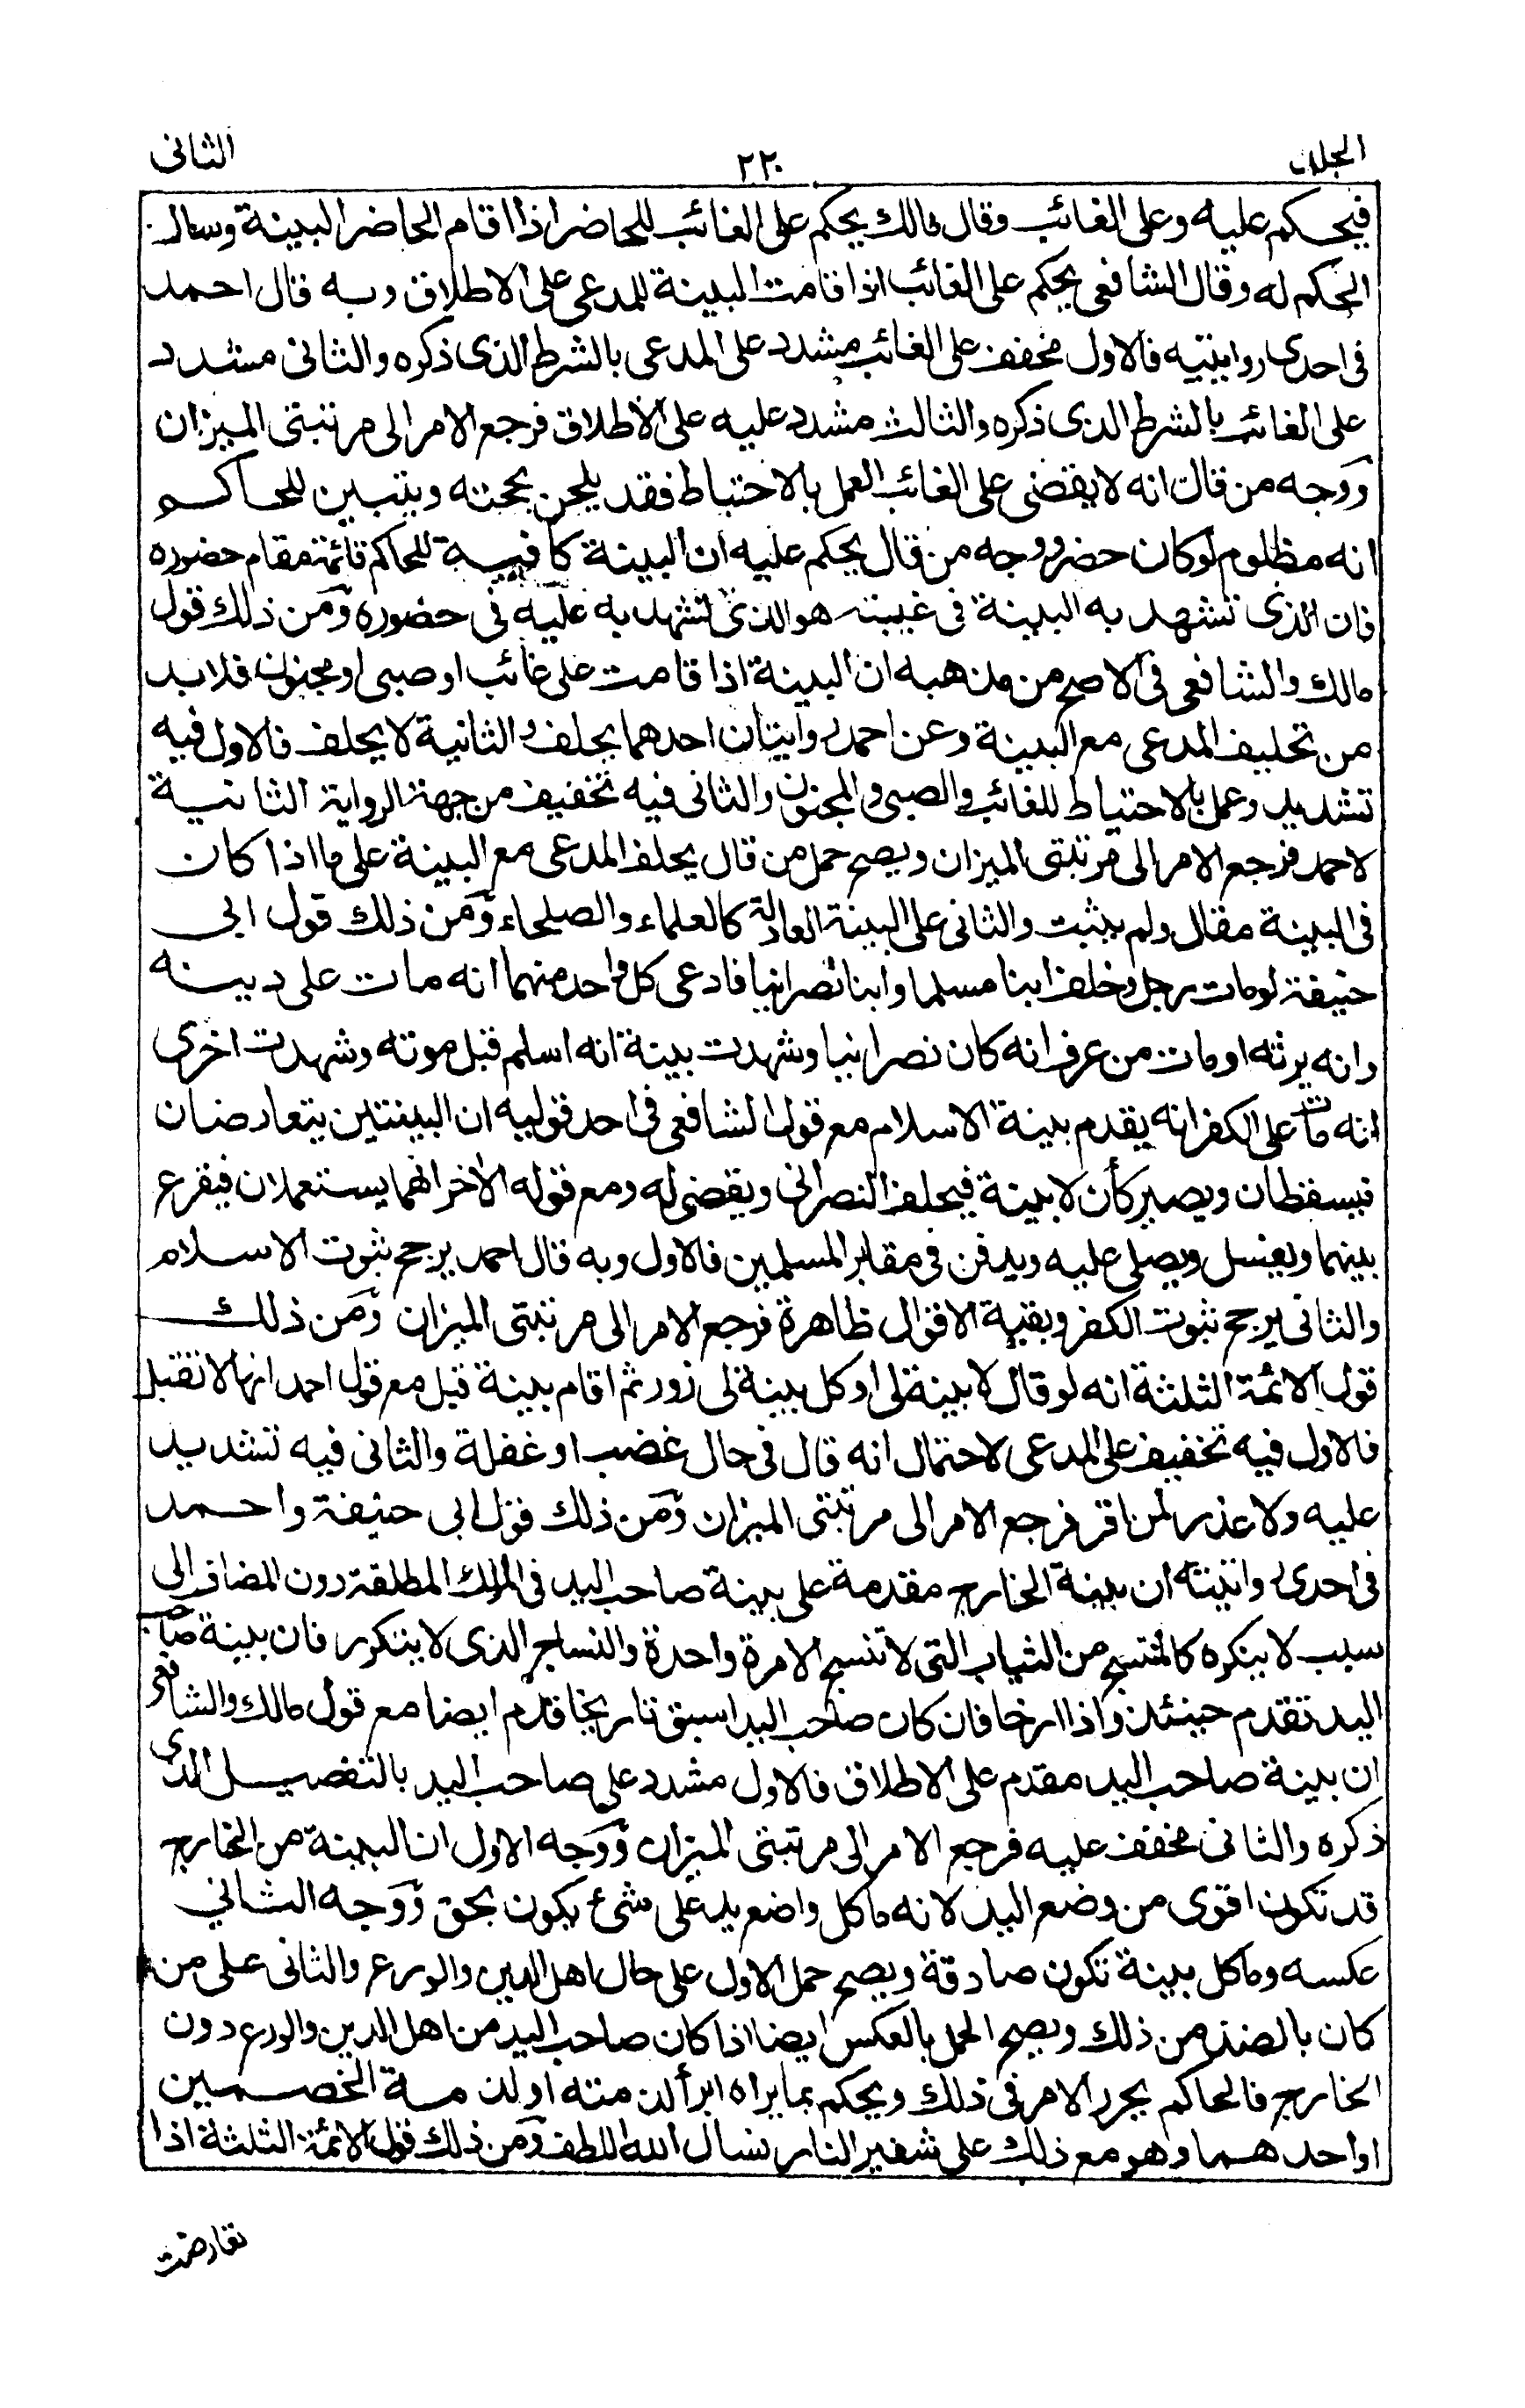 الجلد ٢٢٠ الثانى
فيحكم عليه وعلى الغائب وقال مالك يحكم على الغائب للحاضر اذا اقام الحاضر البينة وسال
الحكم له وقال الشافعى يحكم على الغائب اذا قامت البينة للمدعى على الاطلاق وبه قال احمد
فى احدى روايتيه فالاول مخفف على الغائب مشدد على المدعى بالشرط الذى ذكره والثانى مشدد
على الغائب بالشرط الذى ذكره والثالث مشدد عليه على الاطلاق فرجع الامر الى مرتبتى الميزان
ووجه من قال انه لا يقضى على الغائب العمل بالاحتياط فقد يلحن بحجته ويتبين للحاكم
انه مظلوم لو كان حضر ووجه من قال يحكم عليه ان البينة كافية للحاكم قائمة مقام حضوره
فان الذى تشهد به البينة فى غيبته هو الذى تشهد به عليه فى حضوره ومن ذلك قول
مالك والشافعى فى الاصح من مذهبه ان البينة اذا قامت على غائب او صبى او مجنون فلابد
من تحليف المدعى مع البينة وعن احمد روايتان احدهما يحلف والثانية لا يحلف فالاول فيه
تشديد وعمل بالاحتياط للغائب والصبى والمجنون والثانى فيه تخفيف من جهة الرواية الثانية
لاحمد فرجع الامر الى مرتبتى الميزان ويصح حمل من قال يحلف المدعى مع البينة على ما اذا كان
فى البينة مقال ولم يثبت والثانى على البينة العادلة كالعلماء والصلحاء ومن ذلك قول ابى
حنيفة لو مات رجل وخلف ابنا مسلما وابنا نصرانيا فادعى كل واحد منهما انه مات على دينه
وانه يرثه او مات من عرف انه كان نصرانيا وشهدت بينة انه اسلم قبل موته وشهدت اخرى
انه مات على الكفر انه يقدم بينة الاسلام مع قول الشافعى فى احد قوليه ان البينتين يتعارضان
فيسقطان ويصير كأن لا بينة فيحلف النصرانى ويقضى له ومع قوله الاخر انهما يستعملان فيقرع
بينهما ويغسل ويصلى عليه ويدفن فى مقابر المسلمين فالاول وبه قال احمد يرجح ثبوت الاسلام
والثانى يرجح ثبوت الكفر وبقية الاقوال ظاهرة فرجع الامر الى مرتبتى الميزان ومن ذلك
قول الائمة الثلثة انه لو قال لا بينة لى او كل بينة لى زور ثم اقام بينة قبل مع قول احمد انها لا تقبل
فالاول فيه تخفيف على المدعى لاحتمال انه قال فى حال غضب او غفلة والثانى فيه تشديد
عليه ولا عذر لمن اقر فرجع الامر الى مرتبتى الميزان ومن ذلك قول ابى حنيفة واحمد
فى احدى روايتيه ان بينة الخارج مقدمة على بينة صاحب اليد فى الملك المطلقة دون المضاف الى
سبب لا يتكره كالمنتسج من الثياب التى لا تنسج الا مرة واحدة والنساج الذى لا يتكرر فان بينة صاحب
اليد تقدم حينئذ واذا ارخا فان كان صاحب اليد اسبق تاريخا قدم ايضا مع قول مالك والشافعى
ان بينة صاحب اليد مقدم على الاطلاق فالاول مشدد على صاحب اليد بالتفصيل الذى
ذكره والثانى مخفف عليه فرجع الامر الى مرتبتى الميزان ووجه الاول ان البينة من الخارج
قد تكون اقوى من وضع اليد لانه ما كل واضع يد على شئ يكون بحق ووجه الثانى
عكسه وما كل بينة تكون صادقة ويصح حمل الاول على حال اهل الدين والورع والثانى على من
كان بالضد من ذلك ويصح الحمل بالعكس ايضا اذا كان صاحب اليد من اهل الدين والورع دون
الخارج فالحاكم يحرر الامر فى ذلك ويحكم بما يراه ابرأ لذمته او لذمة الخصمين
او احدهما وهو مع ذلك على شفير النار نسال الله اللطف ومن ذلك قول الائمة الثلثة اذا
تعارضت